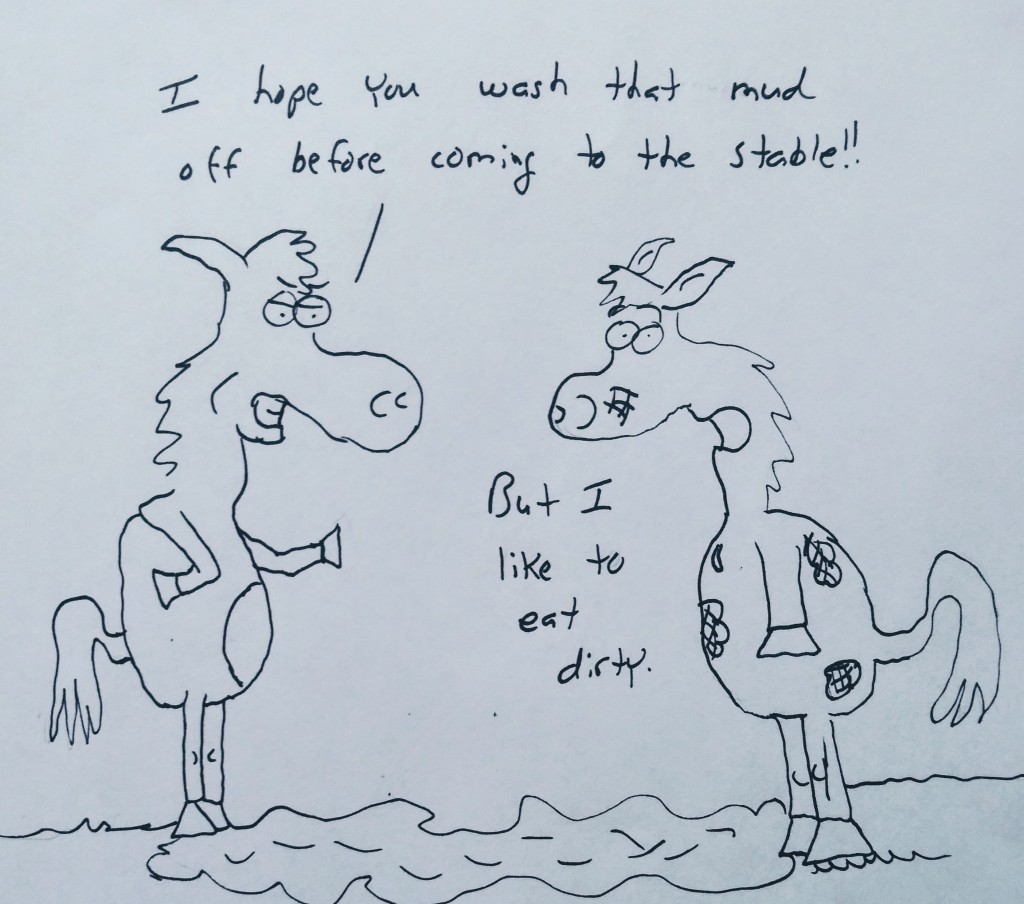 I hope you wash that mud
off before coming to the stable!!
But I
like to
eat
dirty.